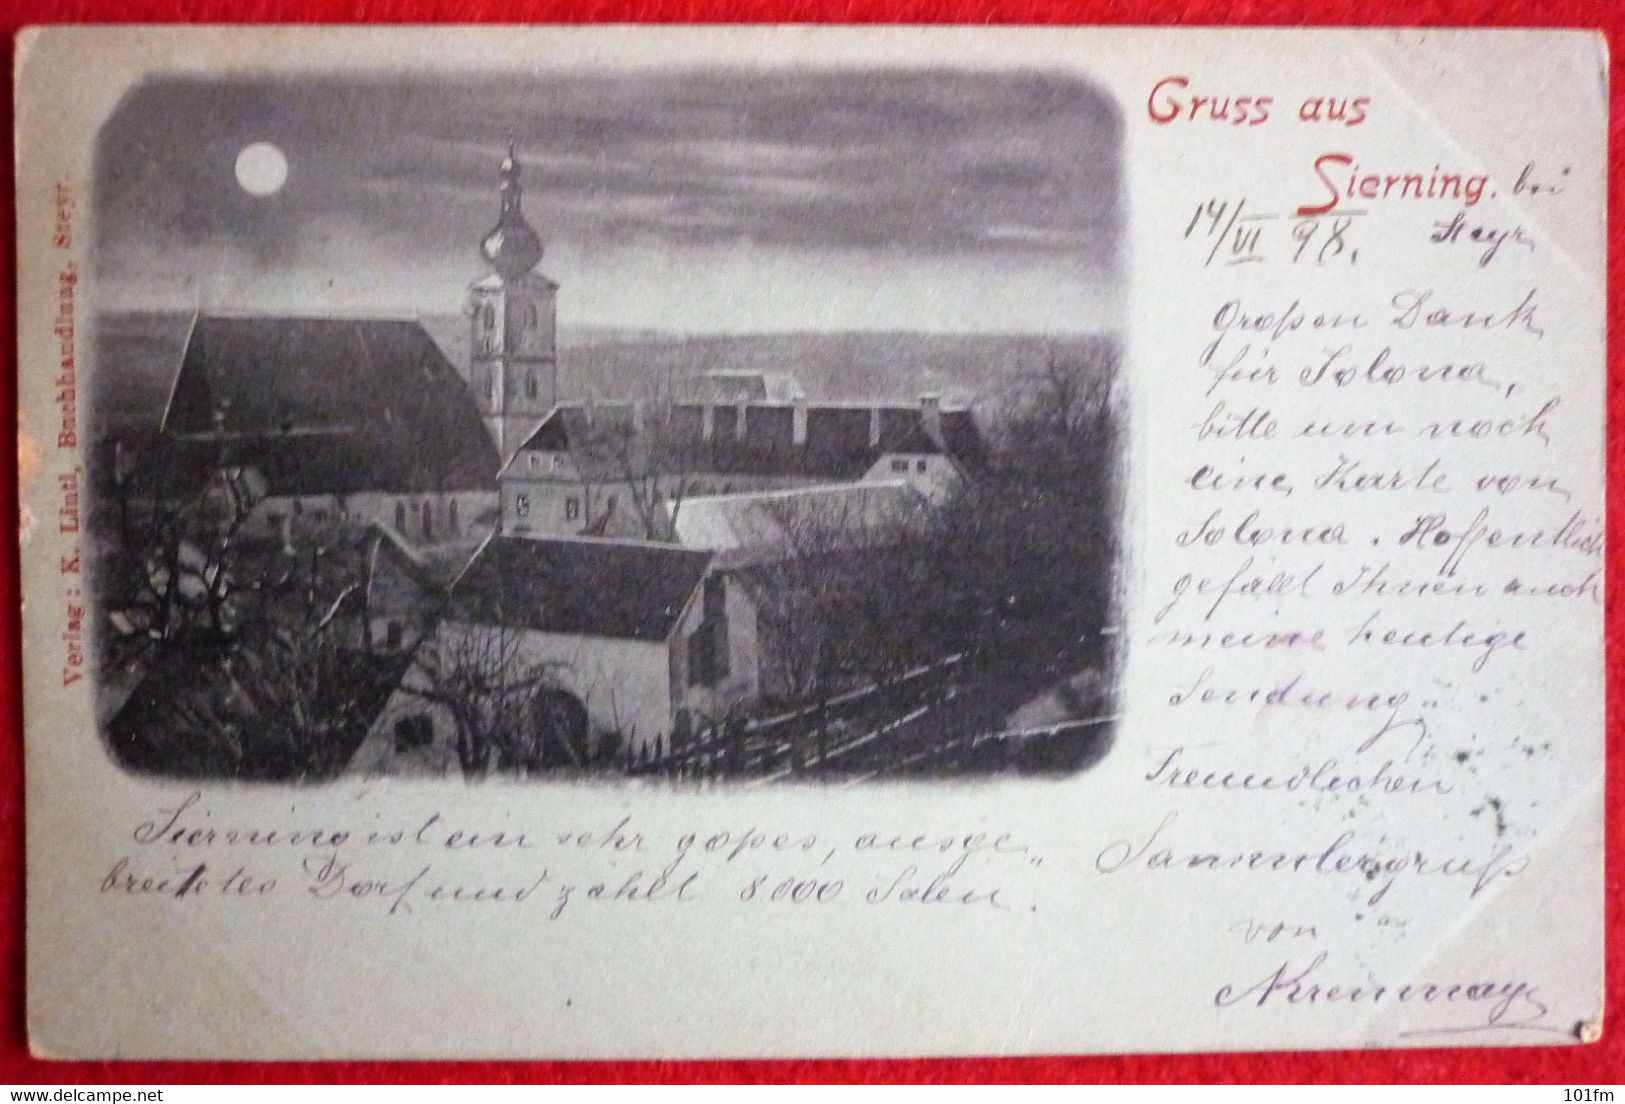 Gruss aus
Sierning. bei
Steyr
14/VI 98.
Großen Dank
für Solona,
bitte um noch
eine Karte von
Solona. Hoffentlich
gefällt Ihnen auch
meine heutige
Sendung.
Freundlichen
Sammlergruß
von
Sierning ist ein sehr großes, ausge„
breitetes Dorf und zählt 8000
Verlag: K. Lintl, Buchhandlung, Steyr.
delcampe.net
101fm